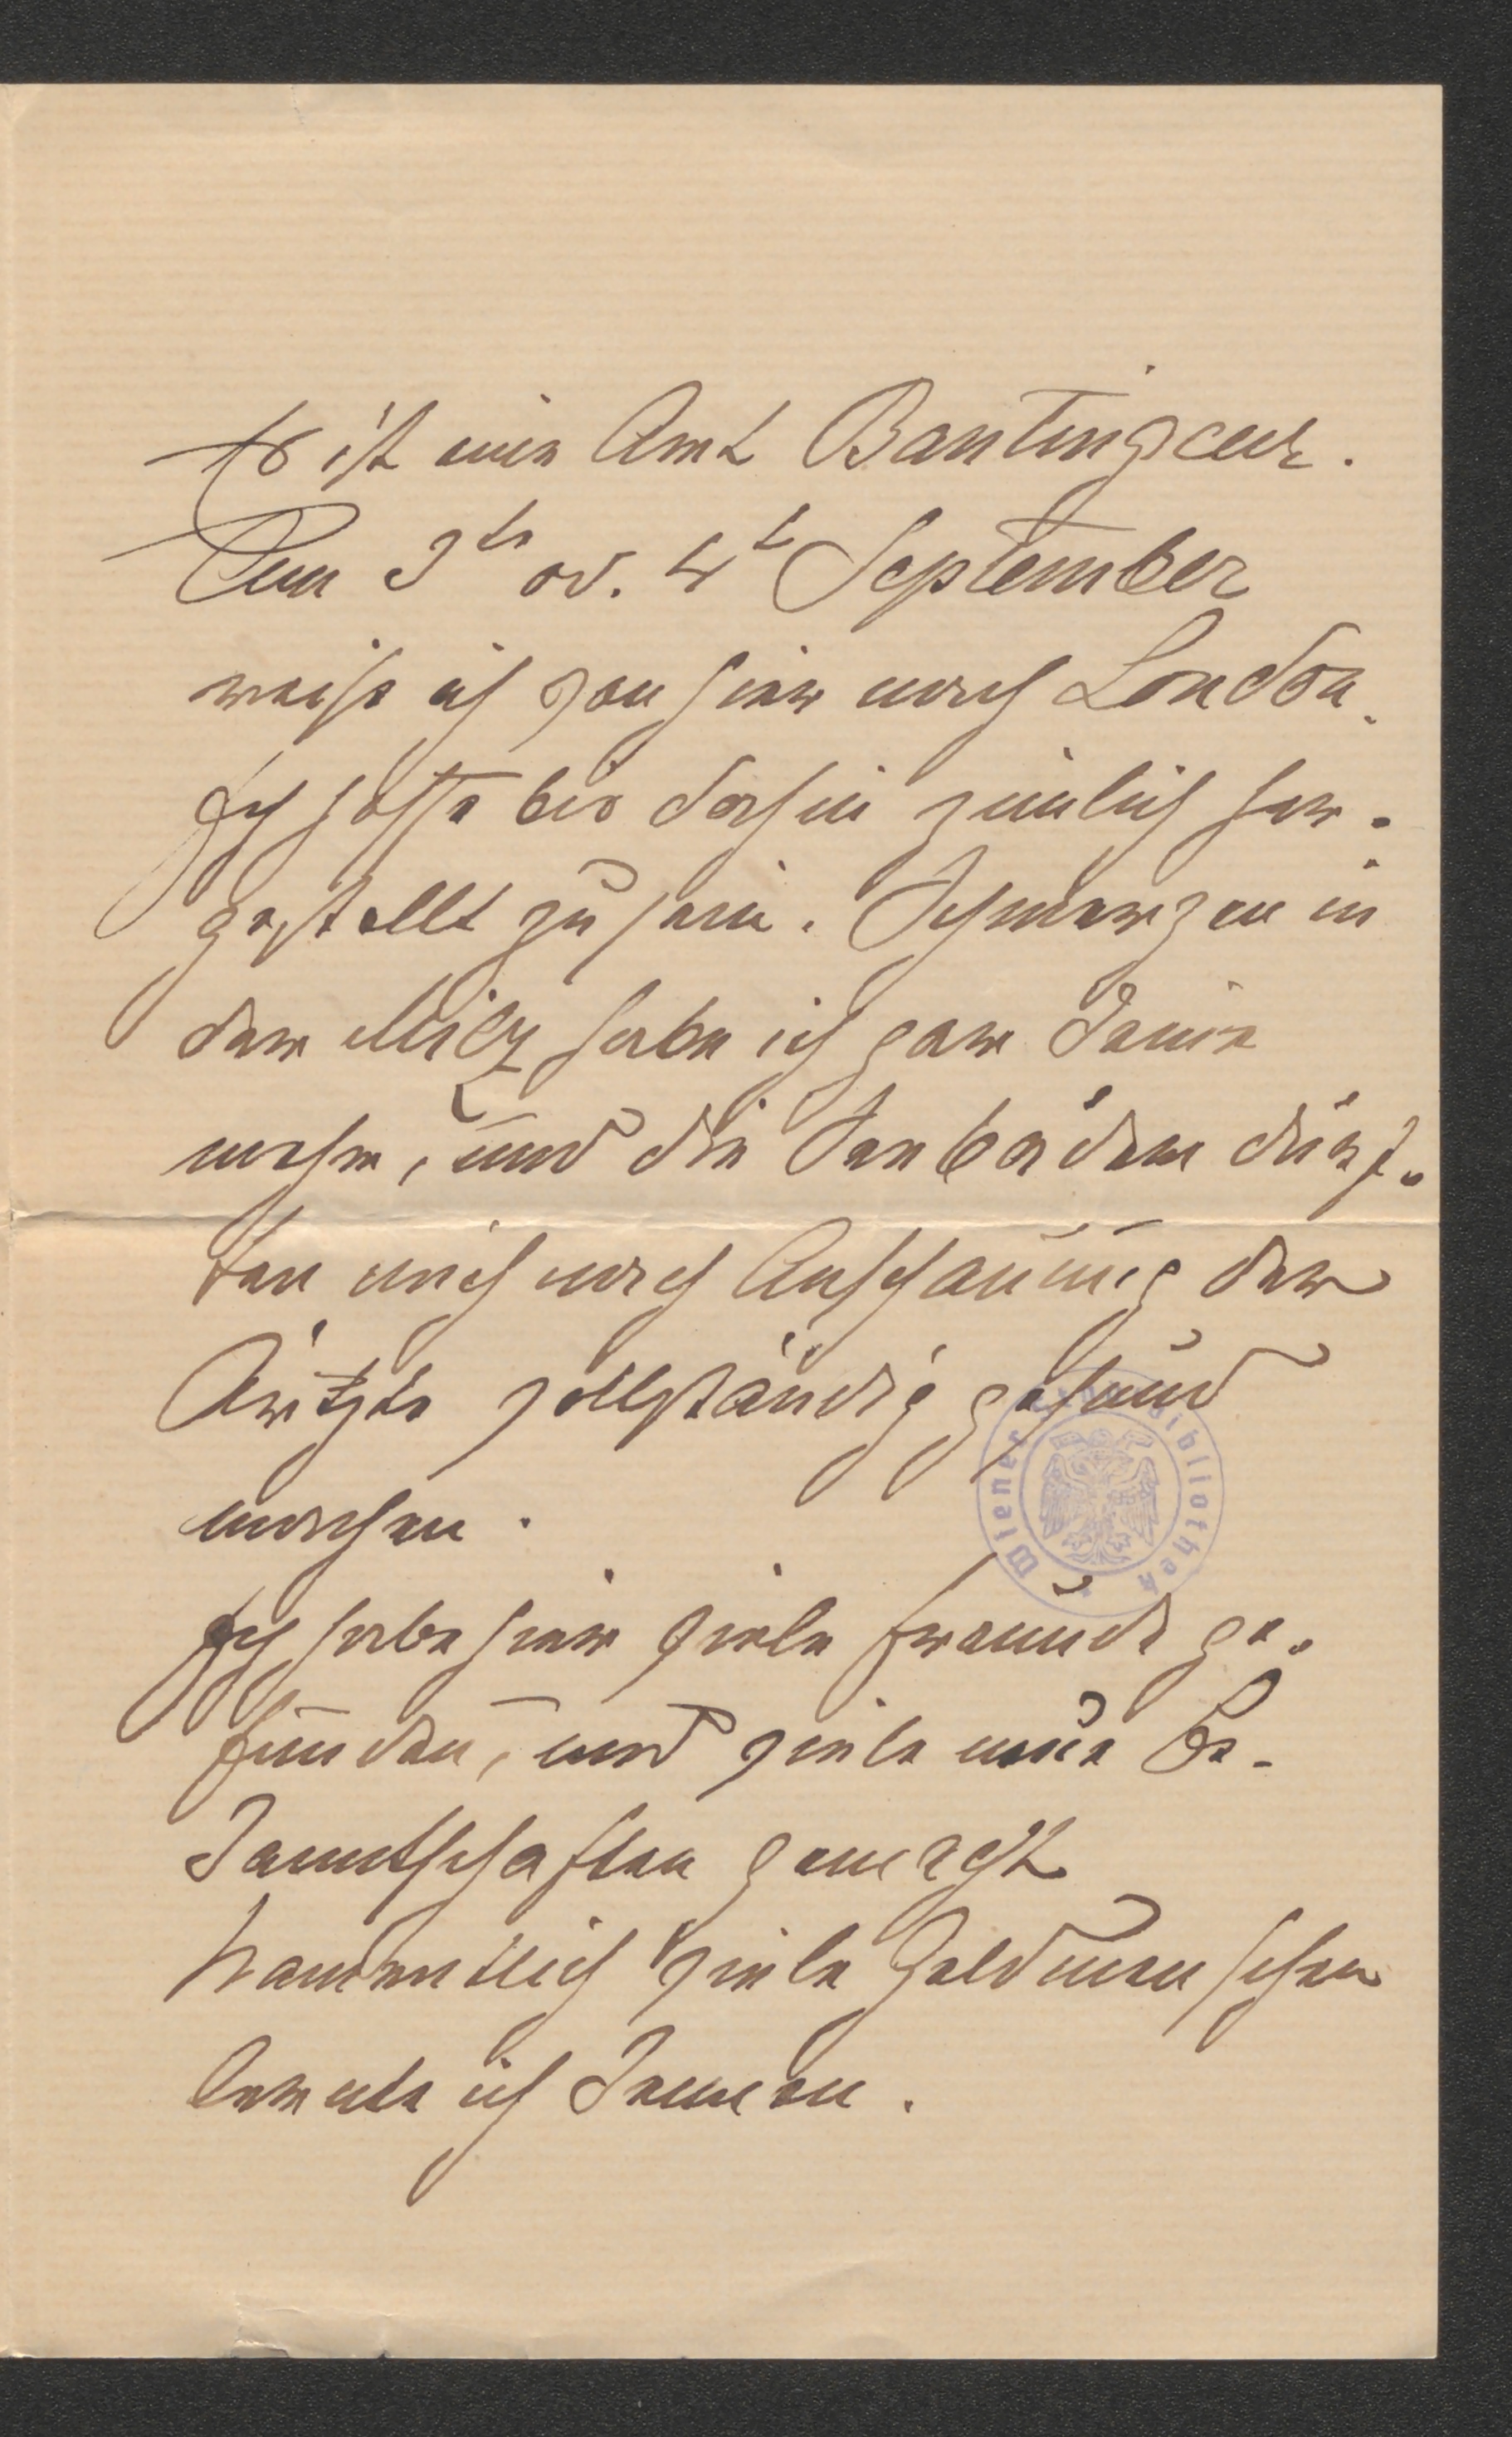 Es ist eine Art Bantingcur.
Am 3te od. 4t September
reise ich von hier nach London.
Ich hoffe bis dahin ziemlich her-
gestellt zu sein. Schmerzen in
der Milz habe ich gar keine
mehr, und die Seebäder dürf-
ten mich nach Anschauung der
Ärtzte vollständig gesund
machen.
Ich habe hier viele Freunde ge-
funden, und viele neue Be-
kanntschaften gemacht
Namentlich viele Geldmenschen
lernte ich kennen.
Wiener Bibliothek